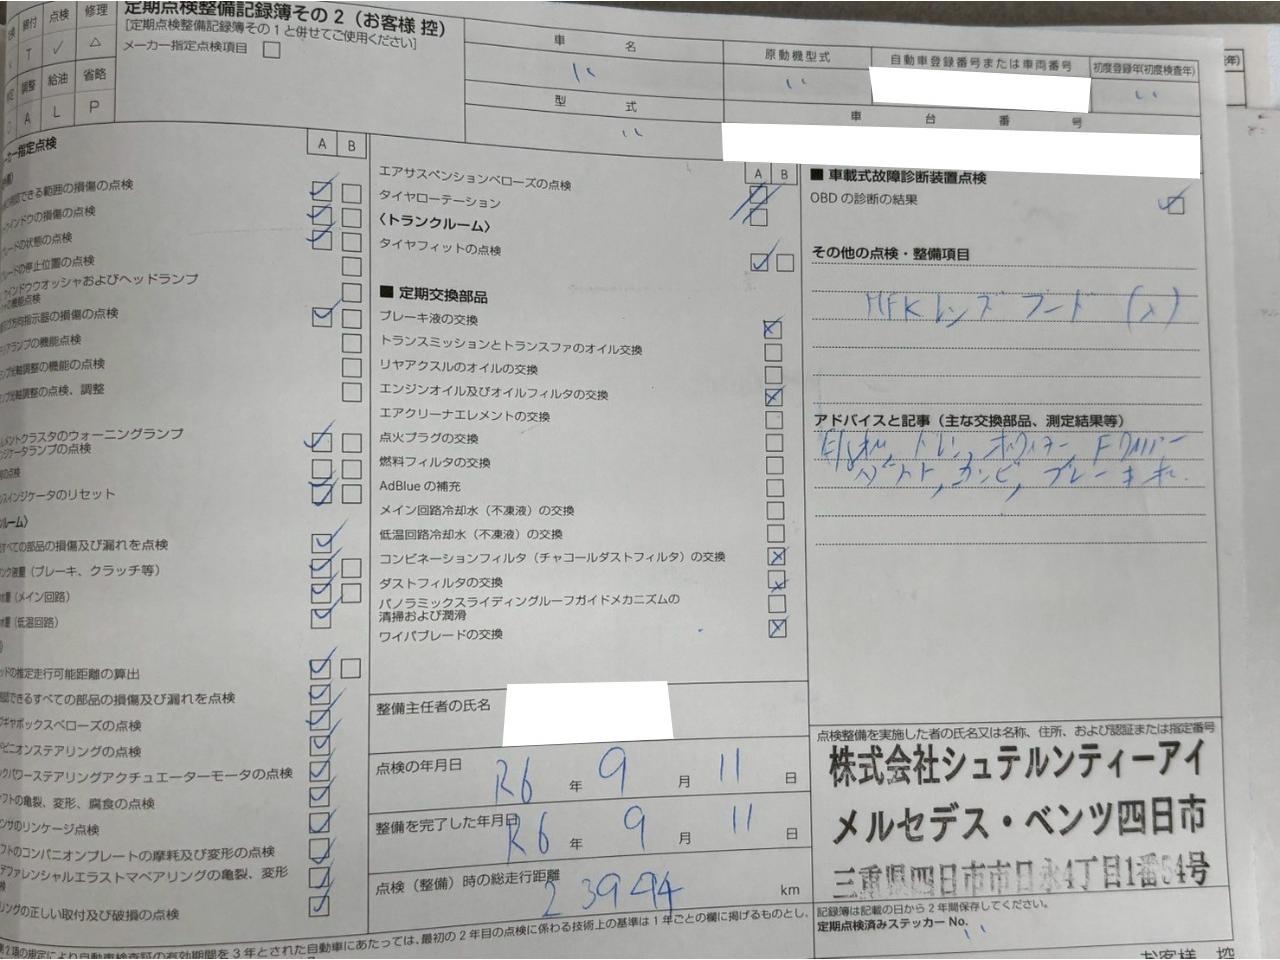 定期点検整備記録簿その2（お客様 控）
[定期点検整備記録簿その1と併せてご使用ください]
メーカー指定点検項目
締付 点検 修理
T ✓ △
調整 給油 省略
A L P
車 名
原動機型式
自動車登録番号または車両番号
初度登録年(初度検査年)
型 式
車 台 番 号
A B
できる範囲の損傷の点検
の損傷の点検
の状態の点検
の停止位置の点検
ウインドウウオッシャおよびヘッドランプ
の機能点検
方向指示器の損傷の点検
ランプの機能点検
光軸調整の機能の点検
光軸調整の点検、調整
クラスタのウォーニングランプ
ランプの点検
インジケータのリセット
すべての部品の損傷及び漏れを点検
量（ブレーキ、クラッチ等）
量（メイン回路）
量（低温回路）
の推定走行可能距離の算出
できるすべての部品の損傷及び漏れを点検
ギヤボックスベローズの点検
ピニオンステアリングの点検
パワーステアリングアクチュエーターモータの点検
の亀裂、変形、腐食の点検
のリンケージ点検
のコンパニオンプレートの摩耗及び変形の点検
デファレンシャルエラストマベアリングの亀裂、変形
リングの正しい取付及び破損の点検
A B
エアサスペンションベローズの点検
タイヤローテーション
〈トランクルーム〉
タイヤフィットの点検
■ 定期交換部品
ブレーキ液の交換
トランスミッションとトランスファのオイル交換
リヤアクスルのオイルの交換
エンジンオイル及びオイルフィルタの交換
エアクリーナエレメントの交換
点火プラグの交換
燃料フィルタの交換
AdBlue の補充
メイン回路冷却水（不凍液）の交換
低温回路冷却水（不凍液）の交換
コンビネーションフィルタ（チャコールダストフィルタ）の交換
ダストフィルタの交換
パノラミックスライディングルーフガイドメカニズムの
清掃および潤滑
ワイパブレードの交換
整備主任者の氏名
点検の年月日 R6 年 9 月 11 日
整備を完了した年月日 R6 年 9 月 11 日
点検（整備）時の総走行距離 23994 km
■ 車載式故障診断装置点検
OBD の診断の結果
その他の点検・整備項目
MFKレンズフード (×)
アドバイスと記事（主な交換部品、測定結果等）
点検整備を実施した者の氏名又は名称、住所、および認証または指定番号
株式会社シュテルンティーアイ
メルセデス・ベンツ四日市
三重県四日市市日永4丁目1番54号
記録簿は記載の日から2年間保存してください。
定期点検済みステッカー No.
2項の規定により自動車検査証の有効期間を3年とされた自動車にあたっては、最初の2年目の点検に係わる技術上の基準は1年ごとの欄に掲げるものとし、
お客様 控